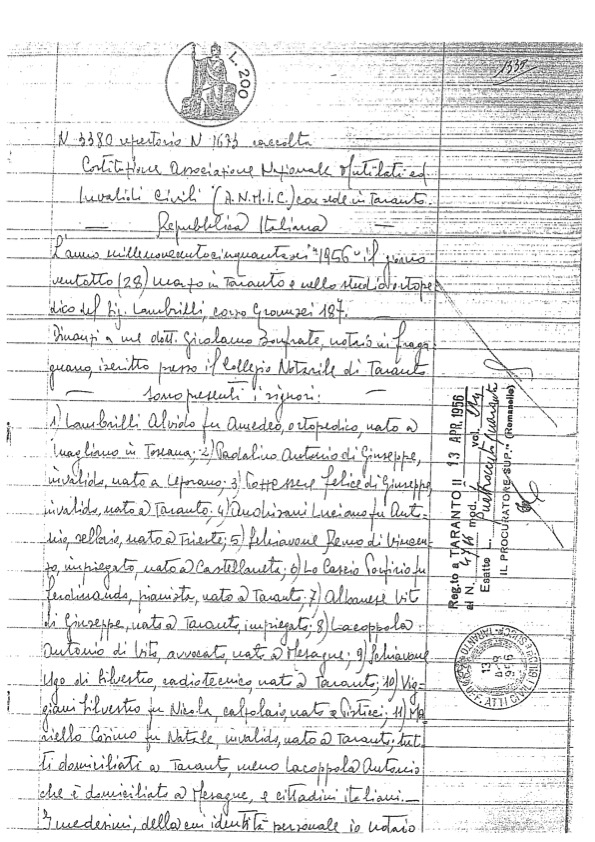 L. 200
1338
N 3380 repertorio N 1633 raccolta
Costituzione Associazione Nazionale Mutilati ed
Invalidi Civili (A.N.M.I.C.) con sede in Taranto.
— Repubblica Italiana —
L'anno millenovecentocinquantasei "1956" il giorno
ventotto (28) marzo in Taranto e nello studio ortope
dico del Sig. Lambrilli, corso 187.
Dinanzi a me dott. Girolamo Bonfrate, notaio in Fraga
gnano, iscritto presso il Collegio Notarile di Taranto
— sono presenti i signori: —
1) Lambrilli Alvido fu Amedeo, ortopedico, nato a
in Toscana; 2) Padalino Antonio di Giuseppe,
invalido, nato a Leporano; 3) felice di Giuseppe,
invalido, nato a Taranto; 4) Luciano fu Anto-
nio, sellaio, nato a Trieste; 5) Schiavone Remo di Vincen-
zo, impiegato, nato a Castellaneta; 6) Lo Cascio Porfirio fu
Ferdinando, pianista, nato a Taranto; 7) Albanese Vito
di Giuseppe, nato a Taranto, impiegato; 8) Lacoppola
Antonio di Vito, avvocato, nato a Mesagne; 9) Schiavone
Ugo di Silvestro, radiotecnico, nato a Taranto; 10) Vig-
giani Silvestro fu Nicola, calzolaio, nato a Pisticci; 11) Ma
riello Cosimo fu Natale, invalido, nato a Taranto; tut-
ti domiciliati a Taranto, meno Lacoppola Antonio
che è domiciliato a Mesagne, e cittadini italiani.—
I medesimi, della cui identità personale io notaio
Reg.to a TARANTO II, 13 APR. 1956
al N. mod. vol.
Esatte
IL PROCURATORE SUP. (Romanello)
13
APR
956
ATTI CIVILI